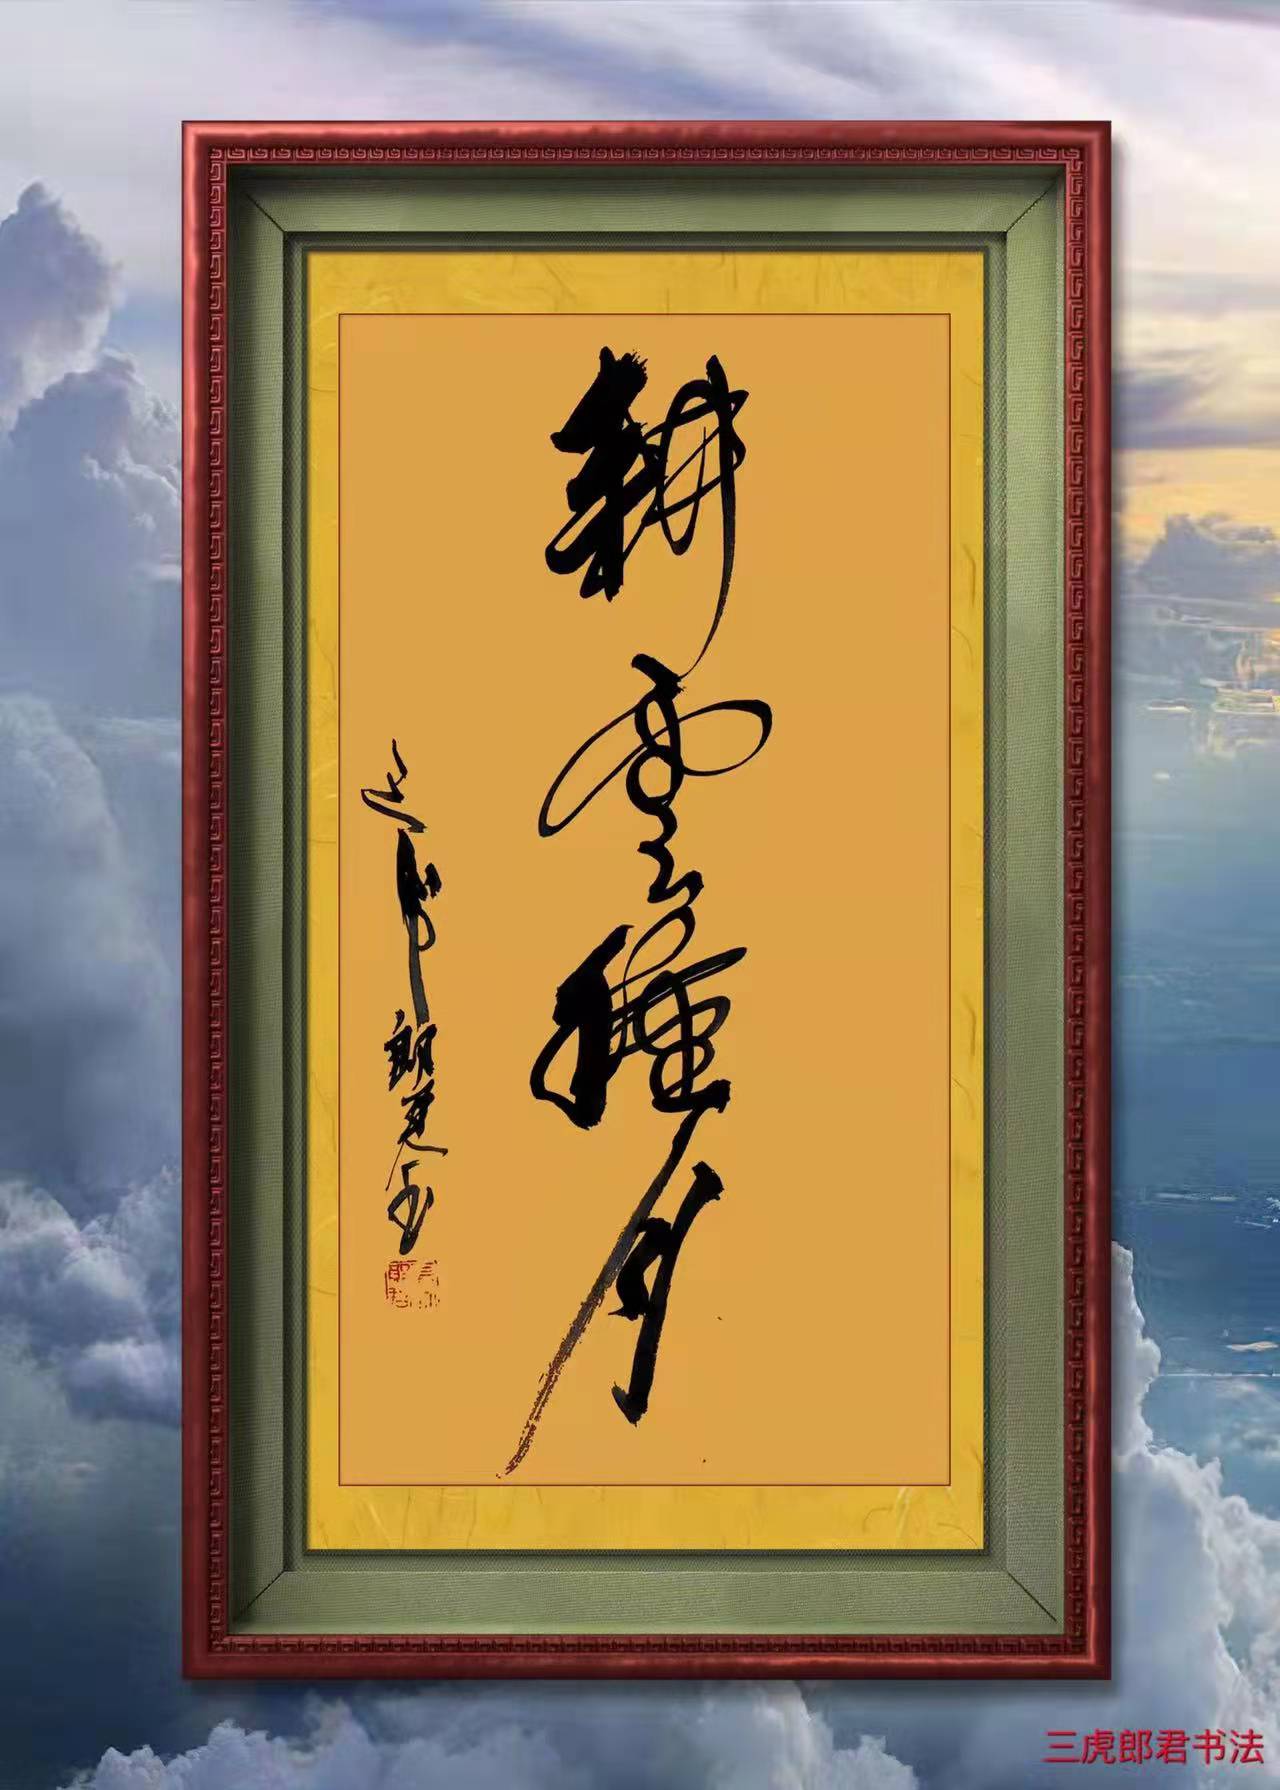 耕雲種月
三虎郎君书
三虎郎君书法